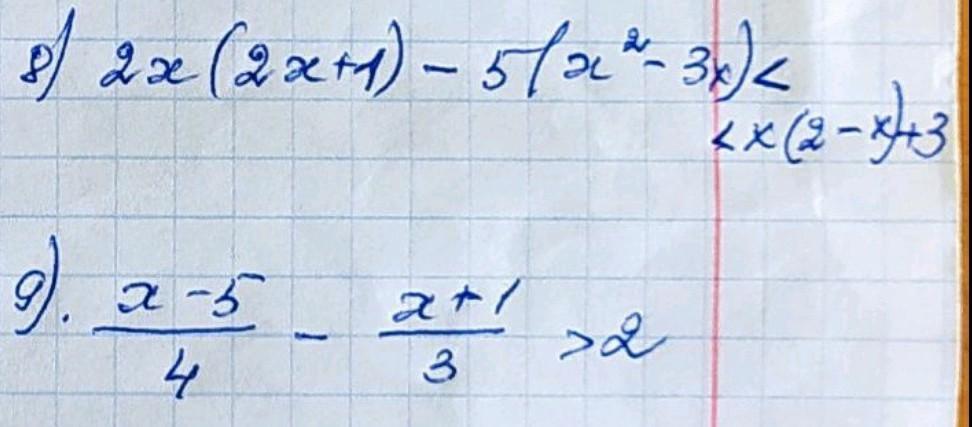 8) 2x(2x+1) - 5(x² - 3x) <
< x(2 - x) + 3
9). \frac{x-5}{4} - \frac{x+1}{3} > 2